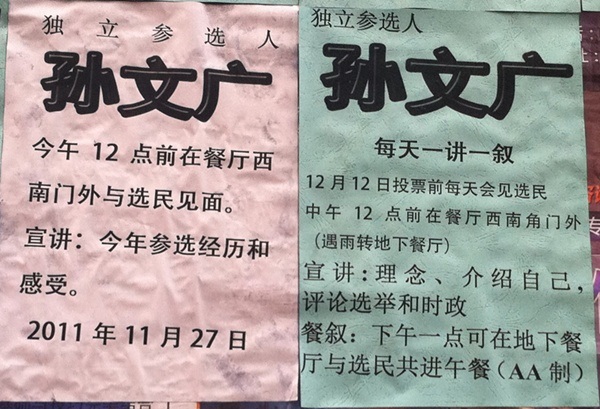 独立参选人
孙文广
今午 12 点前在餐厅西
南门外与选民见面。
宣讲：今年参选经历和
感受。
2011 年 11 月 27 日
独立参选人
孙文广
每天一讲一叙
12 月 12 日投票前每天会见选民
中午 12 点前在餐厅西南角门外
（遇雨转地下餐厅）
宣讲：理念、介绍自己，
评论选举和时政
餐叙：下午一点可在地下餐
厅与选民共进午餐（AA 制）